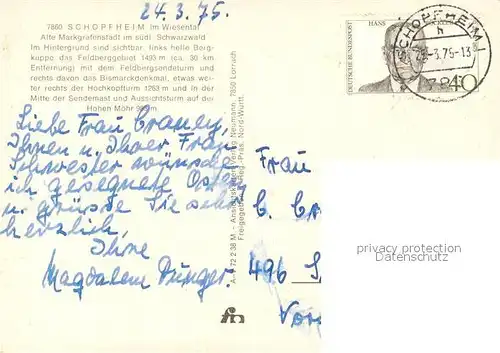 24.3.75.
7860 SCHOPFHEIM im Wiesental
Alte Markgrafenstadt im südl. Schwarzwald
Im Hintergrund sind sichtbar: links helle Berg-
kuppe das Feldberggebiet 1493 m (ca. 30 km
Entfernung) mit dem Feldbergsendeturm und
rechts davon das Bismarckdenkmal, etwas wei-
ter rechts der Hochkopfturm 1263 m und in der
Mitte der Sendemast und Aussichtsturm auf der
Hohen Möhr
Liebe Frau
Ihnen u. Ihrer Frau
Schwester wünsche
ich gesegnete
u. grüsse Sie sehr
herzlich,
Ihre
Magdalena
Ansichtskarten-Verlag Neumann, 7850 Lörrach
Freigegeben Reg.-Präs. Nord-Württ.
DEUTSCHE BUNDESPOST
HANS
40
SCHOPFHEIM
h
.-3.75-13
7860
Frau
C.
496
privacy protection
Datenschutz